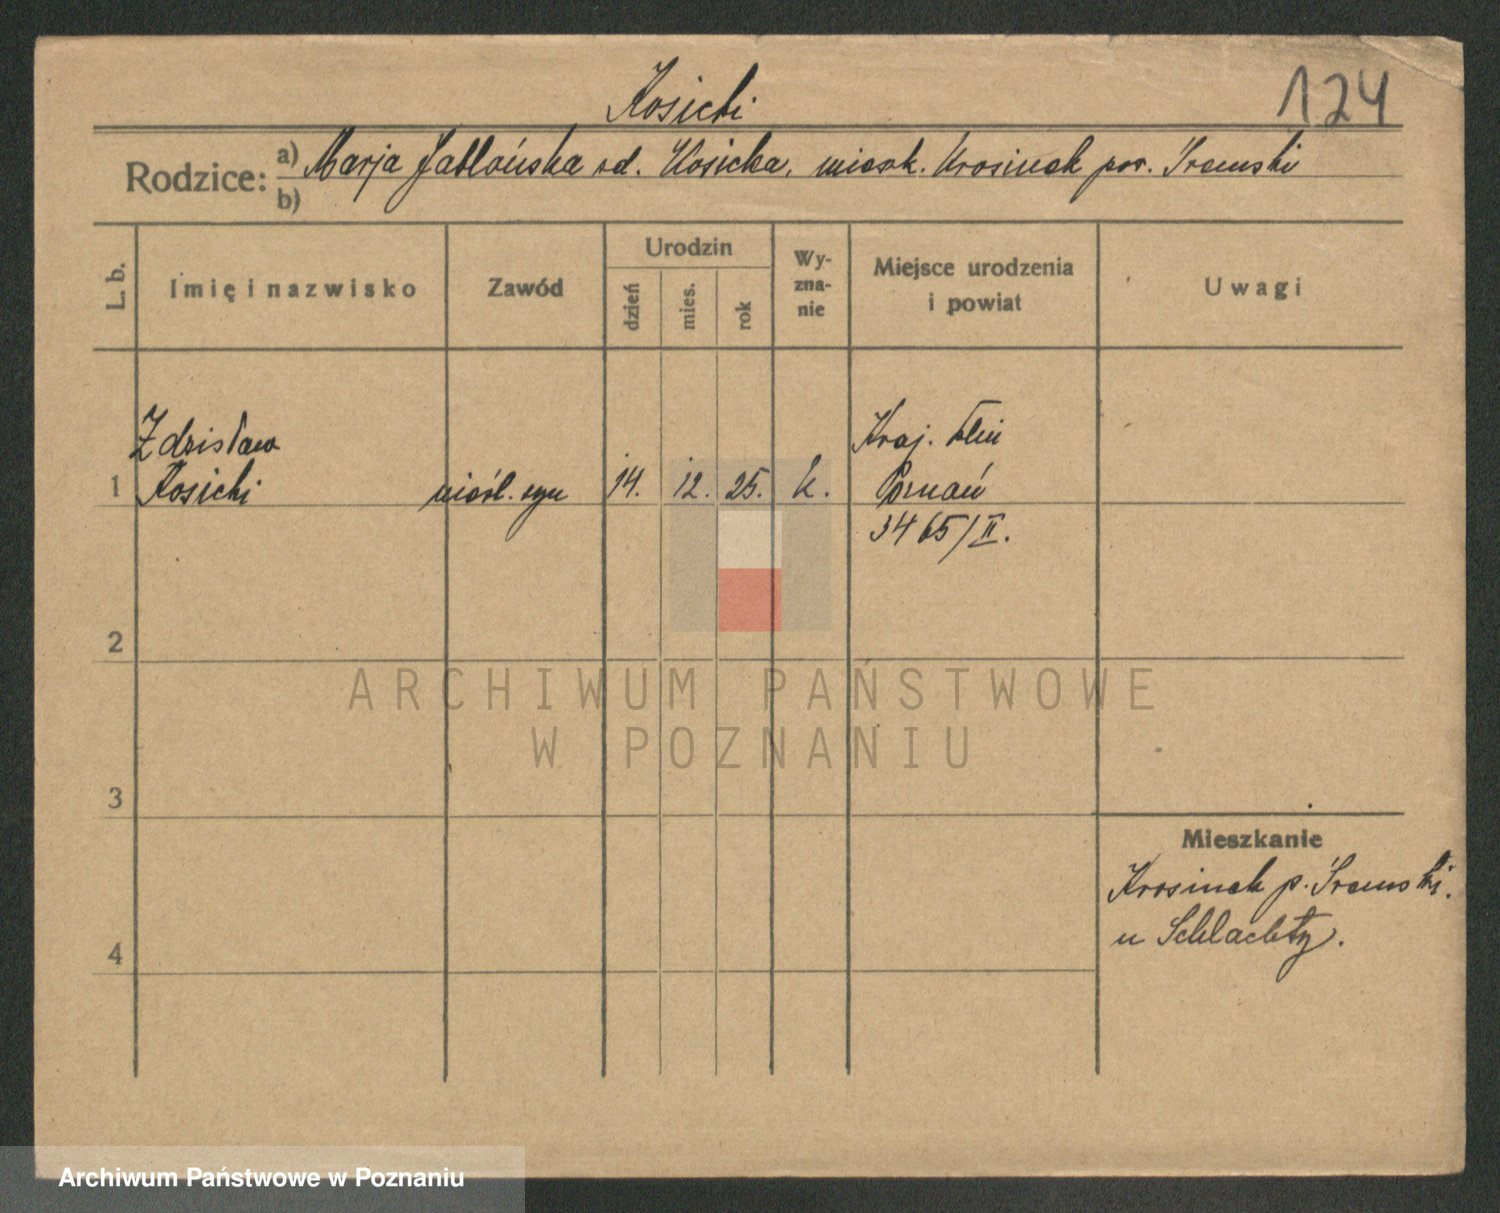 Kosicki
124
Rodzice: a) Marja Jabłońska zd. Kosicka, mieszk. Krosinek pow. Śremski
b)
L. b.
Imię i nazwisko
Zawód
Urodzin
dzień
mies.
rok
Wy-
zna-
nie
Miejsce urodzenia
i powiat
Uwagi
Zdzisław
1 Kosicki nieśl. syn 14. 12. 25. k.
Kraj. Klin
Poznań
3465/II.
2
3
4
Mieszkanie
Krosinek p. Śremski.
u Schlachty.
ARCHIWUM PAŃSTWOWE
W POZNANIU
Archiwum Państwowe w Poznaniu